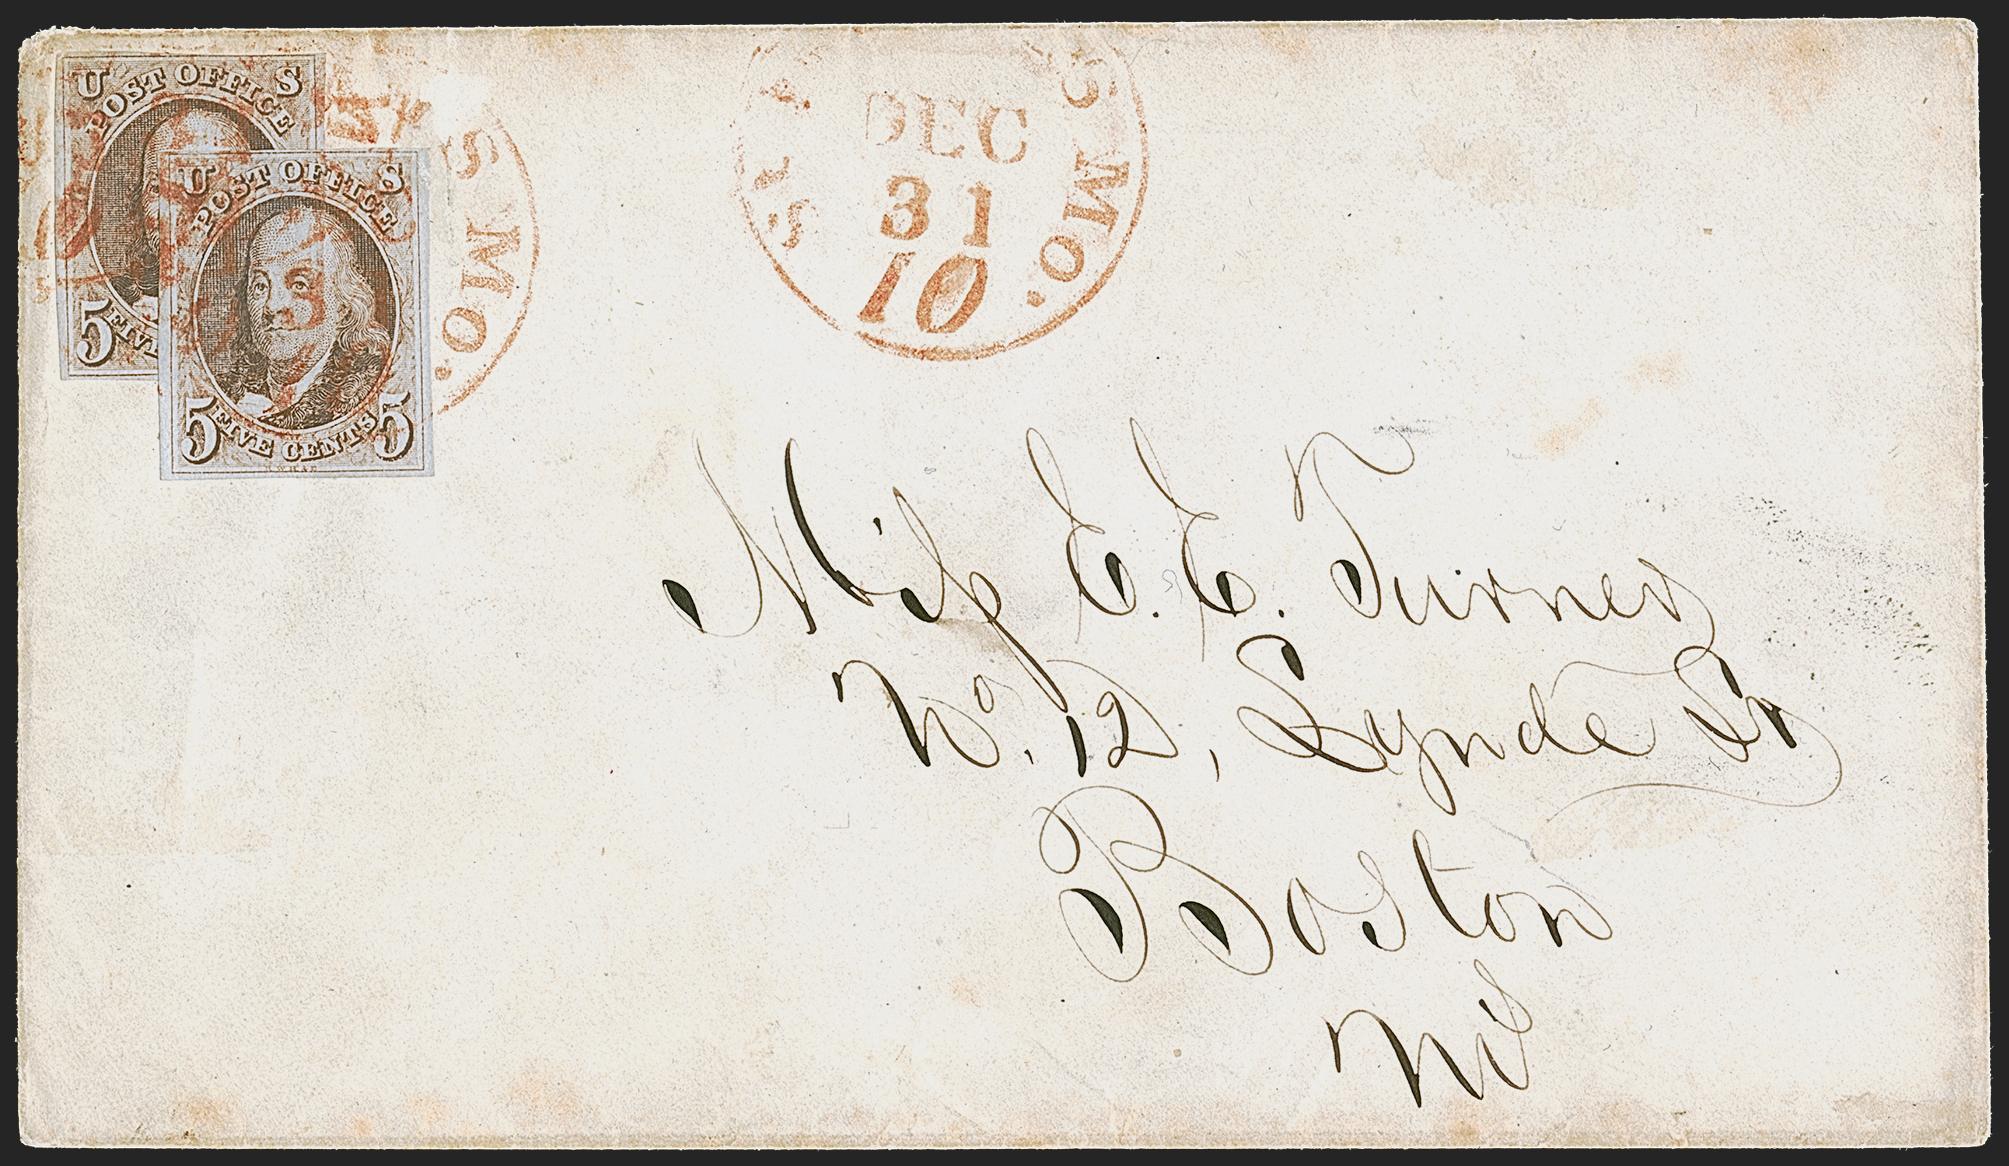 U S
POST OFFICE
5 FIV
U S
POST OFFICE
5 FIVE CENTS 5
S MO.
S MO.
DEC
31
10
Miss E. E. Turner
No. 12, Lynde St
Boston
Ms